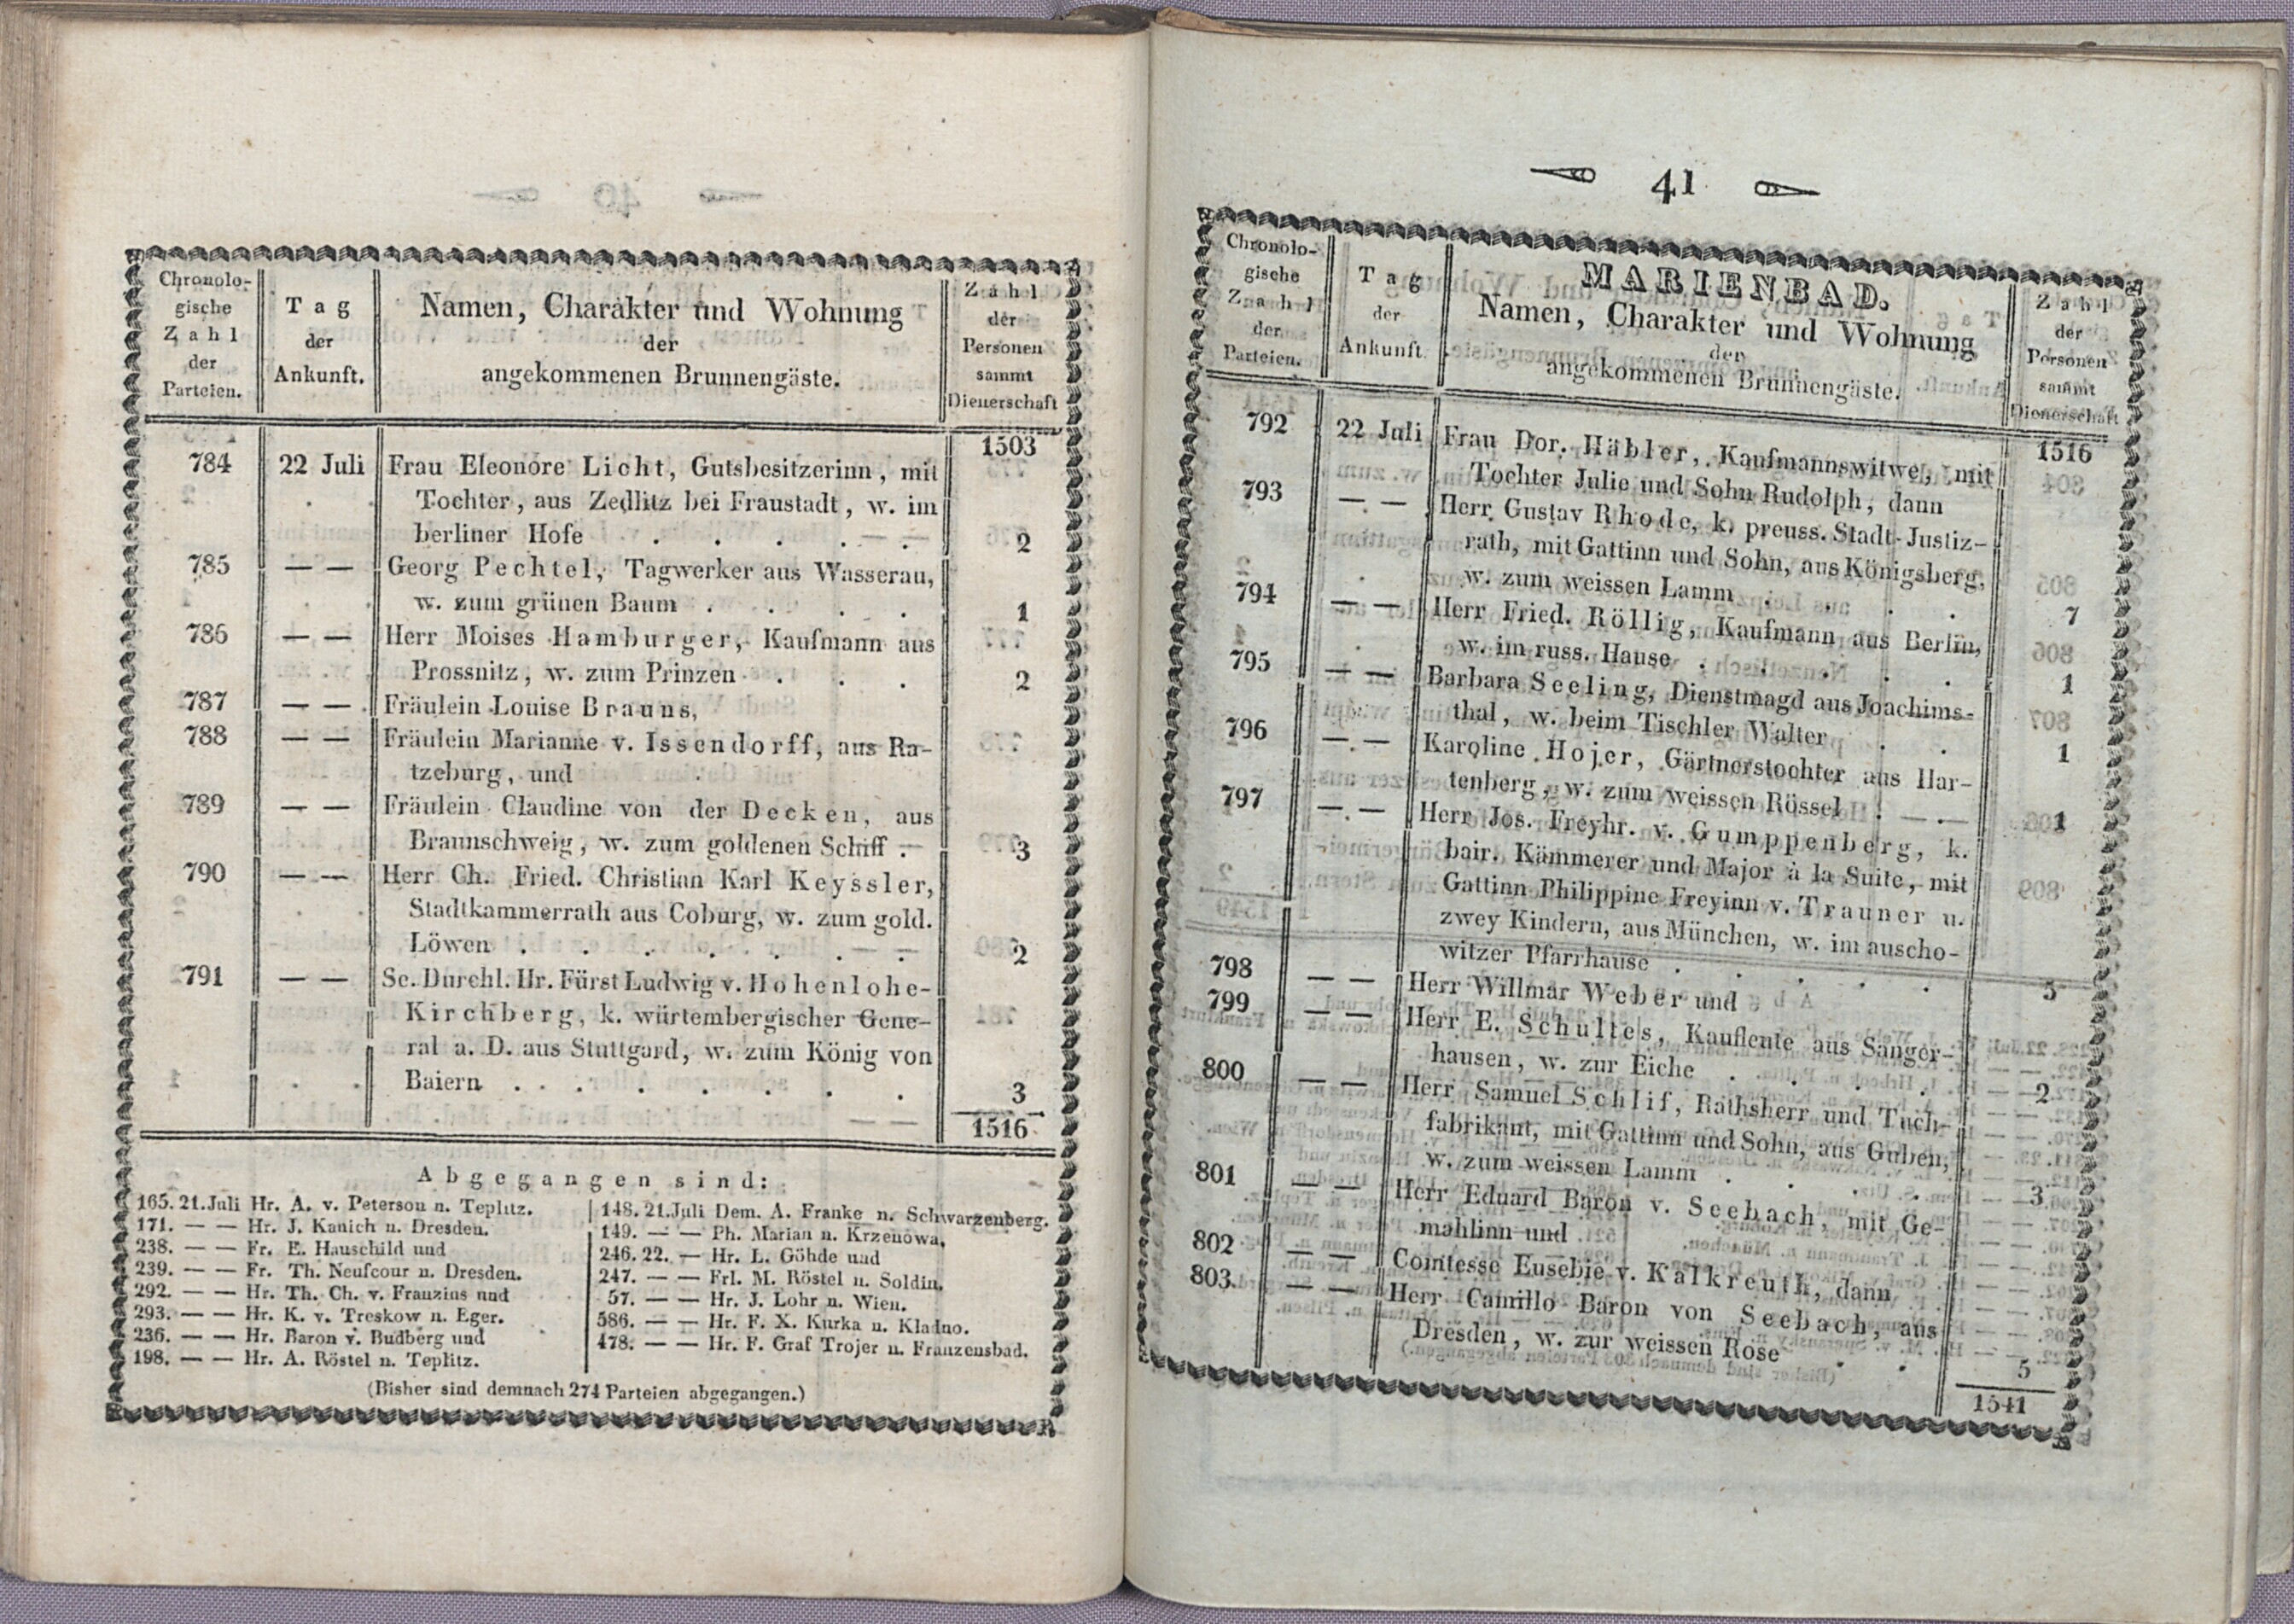 Chronolo-
gische
Zahl
der
Parteien.
Tag
der
Ankunft.
Namen, Charakter und Wohnung
der
angekommenen Brunnengäste.
Zahl
der
Personen
sammt
Dienerschaft
1503
784 22 Juli Frau Eleonore Licht, Gutsbesitzerinn, mit
Tochter, aus Zedlitz bei Fraustadt, w. im
berliner Hofe . . . . . 2
785 — — Georg Pechtel, Tagwerker aus Wasserau,
w. zum grünen Baum . . . . 1
786 — — Herr Moises Hamburger, Kaufmann aus
Prossnitz, w. zum Prinzen . . . 2
787 — — Fräulein Louise Brauns,
788 — — Fräulein Marianne v. Issendorff, aus Ra-
tzeburg, und
789 — — Fräulein Claudine von der Decken, aus
Braunschweig, w. zum goldenen Schiff . 3
790 — — Herr Ch. Fried. Christian Karl Keyssler,
Stadtkammerrath aus Coburg, w. zum gold.
Löwen . . . . . . . 2
791 — — Se. Durchl. Hr. Fürst Ludwig v. Hohenlohe-
Kirchberg, k. würtembergischer Gene-
ral a. D. aus Stuttgard, w. zum König von
Baiern . . . . . . . 3
1516
Abgegangen sind:
165. 21. Juli Hr. A. v. Peterson n. Teplitz.
171. — — Hr. J. Kanich n. Dresden.
238. — — Fr. E. Hauschild und
239. — — Fr. Th. Neufcour n. Dresden.
292. — — Hr. Th. Ch. v. Franzius und
293. — — Hr. K. v. Treskow n. Eger.
236. — — Hr. Baron v. Budberg und
198. — — Hr. A. Röstel n. Teplitz.
148. 21. Juli Dem. A. Franke n. Schwarzenberg.
149. — — Ph. Marian n. Krzenowa.
246. 22. — Hr. L. Göhde und
247. — — Frl. M. Röstel n. Soldin.
57. — — Hr. J. Lohr n. Wien.
586. — — Hr. F. X. Kurka n. Kladno.
478. — — Hr. F. Graf Trojer n. Franzensbad.
(Bisher sind demnach 274 Parteien abgegangen.)
41
Chronolo-
gische
Zahl
der
Parteien.
Tag
der
Ankunft.
MARIENBAD.
Namen, Charakter und Wohnung
der
angekommenen Brunnengäste.
Zahl
der
Personen
sammt
Dienerschaft
1516
792 22 Juli Frau Dor. Häbler, Kaufmannswitwe, mit
Tochter Julie und Sohn Rudolph, dann
793 — — Herr Gustav Rhode, k. preuss. Stadt-Justiz-
rath, mit Gattinn und Sohn, aus Königsberg,
w. zum weissen Lamm . . . . 7
794 — — Herr Fried. Röllig, Kaufmann aus Berlin,
w. im russ. Hause . . . . . 1
795 — — Barbara Seeling, Dienstmagd aus Joachims-
thal, w. beim Tischler Walter . . 1
796 — — Karoline Hojer, Gärtnerstochter aus Har-
tenberg, w. zum weissen Rössel . . 1
797 — — Herr Jos. Freyhr. v. Gumppenberg, k.
bair. Kämmerer und Major à la Suite, mit
Gattinn Philippine Freyinn v. Trauner u.
zwey Kindern, aus München, w. im auscho-
witzer Pfarrhause . . . . . 5
798 — — Herr Willmar Weber und
799 — — Herr E. Schultes, Kaufleute aus Sanger-
hausen, w. zur Eiche . . . . 2
800 — — Herr Samuel Schlif, Rathsherr und Tuch-
fabrikant, mit Gattinn und Sohn, aus Guben,
w. zum weissen Lamm . . . . 3
801 — — Herr Eduard Baron v. Seebach, mit Ge-
mahlinn und
802 — — Comtesse Eusebie v. Kalkreuth, dann
803. — — Herr Camillo Baron von Seebach, aus
Dresden, w. zur weissen Rose . . 5
1541